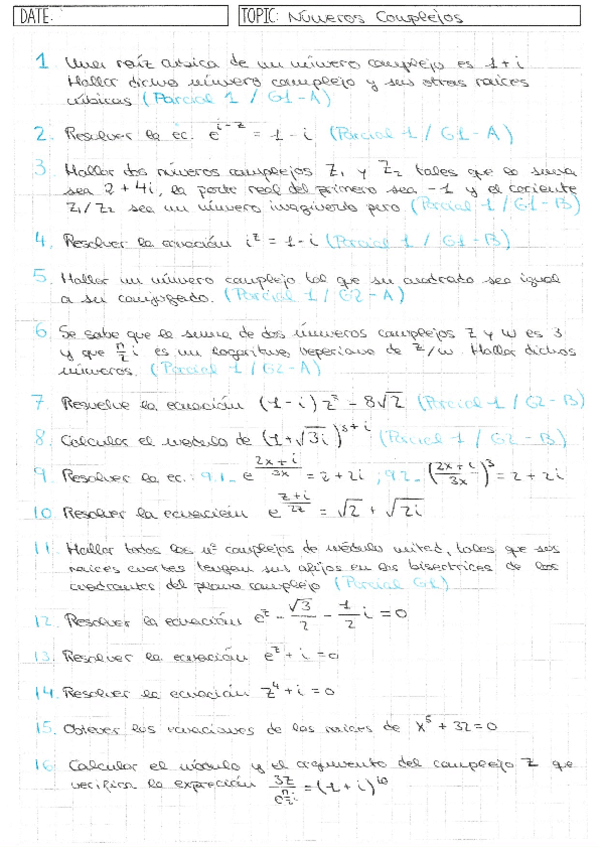 DATE:
TOPIC: Números Complejos
1 Una raíz cúbica de un número complejo es 1+i
Hallar dicho número complejo y sus otras raíces
cúbicas (Parcial 1 / G1-A)
2. Resolver la ec. e^{i-z} = 1-i (Parcial 1 / G1-A)
3. Hallar dos números complejos Z₁ y Z₂ tales que la suma
sea 2+4i, la parte real del primero sea -1 y el cociente
Z₁/Z₂ sea un número imaginario puro (Parcial 1 / G1-B)
4. Resolver la ecuación i^z = 1-i (Parcial 1 / G1-B)
5. Hallar un número complejo tal que su cuadrado sea igual
a su conjugado. (Parcial 1 / G2-A)
6. Se sabe que la suma de dos números complejos z y w es 3
y que π/2 i es un logaritmo neperiano de z/w. Hallar dichos
números. (Parcial 1 / G2-A)
7. Resuelve la ecuación (1-i) z³ - 8√2 (Parcial 1 / G2-B)
8. Calcular el módulo de (1+√3i)^{3+i} (Parcial 1 / G2-B)
9. Resolver la ec.: 9.1_ e^{(2x+i)/3x} = 2+2i , 9.2_ ((2x+i)/3x)³ = 2+2i
10. Resolver la ecuación e^{(z+i)/2z} = √2 + √2i
11. Hallar todos los nº complejos de módulo unidad, tales que sus
raíces cuartas tengan sus afijos en las bisectrices de los
cuadrantes del plano complejo (Parcial G1)
12. Resolver la ecuación e^z - √3/2 - 1/2 i = 0
13. Resolver la ecuación e^z + i = 0
14. Resolver la ecuación z⁴ + i = 0
15. Obtener las variaciones de las raíces de x⁵ + 32 = 0
16. Calcular el módulo y el argumento del complejo z que
verifica la expresión 3z/e^{π/2 i} = (1+i)^{10}